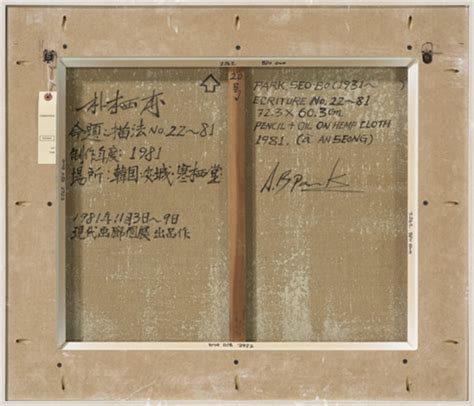 朴栖甫
命題: 描法 No.22~81
制作年度: 1981
場所: 韓国・安城・寒栖堂
1981年11月3日~9日
現代画廊個展出品作
20号
PARK, SEO-BO (1931~ )
ECRITURE No. 22-81
72.3 x 60.3 cm
PENCIL + OIL ON HEMP CLOTH
1981. (à ANSEONG)